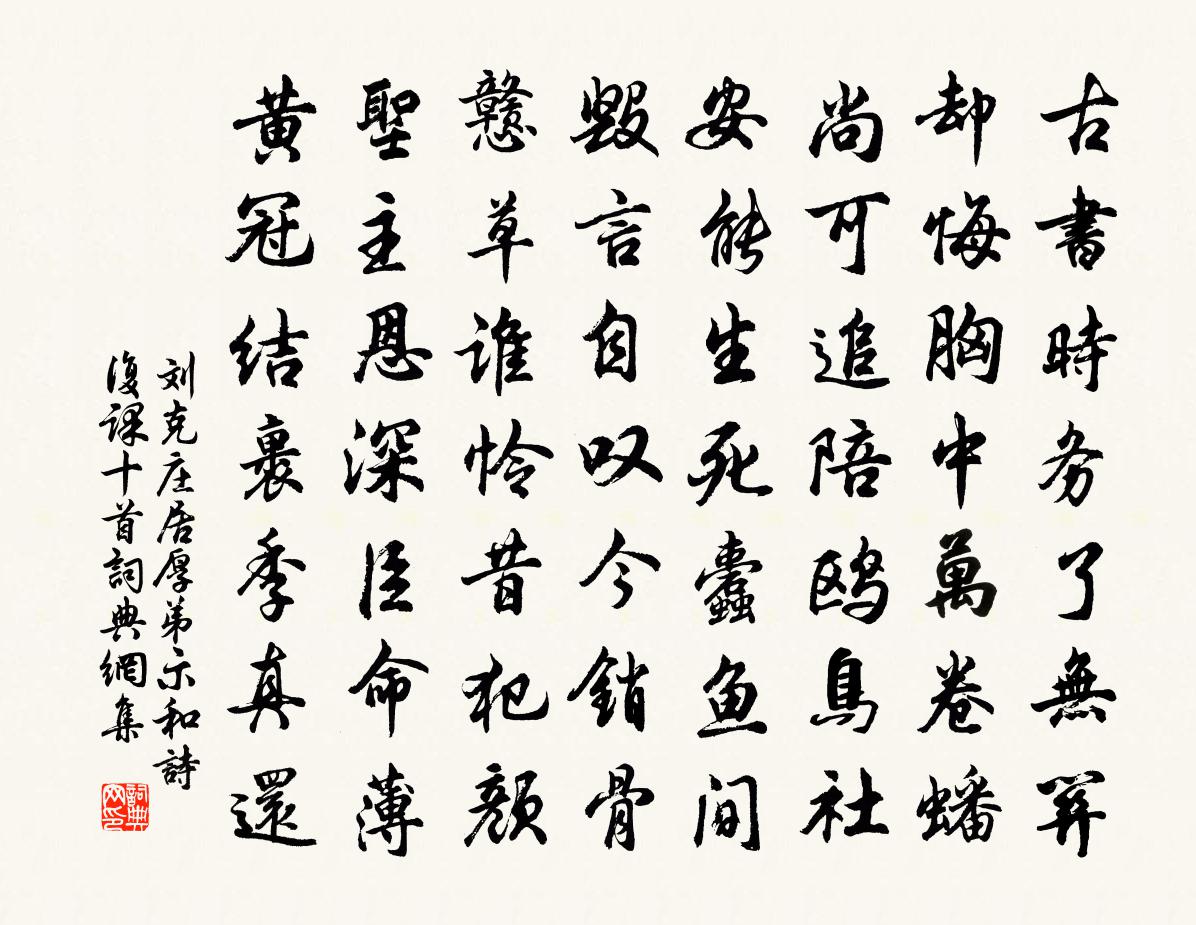 古書時务了無関
却悔胸中萬卷蟠
尚可追陪鸥鳥社
安能生死蠹鱼间
毁言自叹今銷骨
戇草谁怜昔犯颜
聖主恩深臣命薄
黄冠结裹季真還
刘克庄居厚弟示和詩
復课十首詞典網集
詞典网印